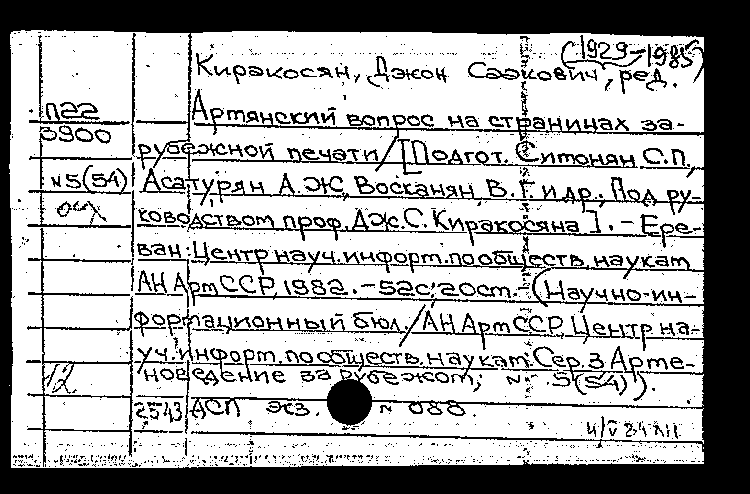 (1929-1985)
Киракосян, Джон Саакович, ред.
п22
3900
Артянский вопрос на странинах за-
рубежной печати/[Подгот. Ситонян С.П.,
N5(54)
Асатурян А.Ж, Восканян В.Г. и др.; Под ру-
ководством проф. Дж.С. Киракосяна]. - Ере-
ван: Центр науч. информ. по обществ. наукам
АН АрмССР, 1982. - 52с; 20см. (Научно-ин-
формационный бюл./АН АрмССР, Центр на-
уч. информ. по обществ. наукам. Сер. 3 Арме-
12
новедение за рубежом, N 5(54)).
2543 АСП экз. N 088.